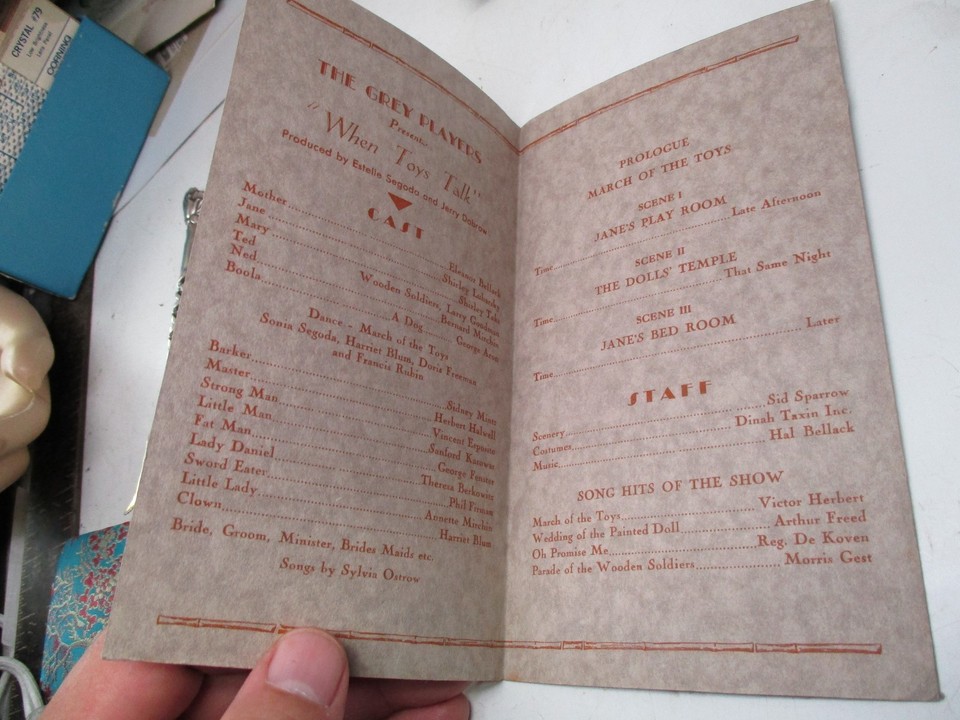 CRYSTAL #79
Low Brightness
Lens Panel
CORNING
THE GREY PLAYERS
Present
"When Toys Talk"
Produced by Estelle Segoda and Jerry Dobrow
CAST
Mother.......... Eleanor Bellack
Jane.......... Shirley
Mary.......... Shirley
Ted.......... Wooden Soldiers, Larry
Ned.......... Bernard
Boola.......... A Dog.......... George
Dance - March of the Toys
Sonia Segoda, Harriet Blum, Doris Freeman
and Francis Rubin
Barker.......... Sidney
Master.......... Herbert Halwell
Strong Man.......... Vincent
Little Man.......... Sanford
Fat Man.......... George
Lady Daniel.......... Theresa Berkowitz
Sword Eater.......... Phil
Little Lady.......... Annette
Clown.......... Harriet Blum
Bride, Groom, Minister, Brides Maids etc.
Songs by Sylvia Ostrow
PROLOGUE
MARCH OF THE TOYS
SCENE I
JANE'S PLAY ROOM
Time.......... Late Afternoon
SCENE II
THE DOLLS' TEMPLE
Time.......... That Same Night
SCENE III
JANE'S BED ROOM
Time.......... Later
STAFF
Scenery.......... Sid Sparrow
Costumes.......... Dinah Taxin Inc.
Music.......... Hal Bellack
SONG HITS OF THE SHOW
March of the Toys.......... Victor Herbert
Wedding of the Painted Doll.......... Arthur Freed
Oh Promise Me.......... Reg. De Koven
Parade of the Wooden Soldiers.......... Morris Gest